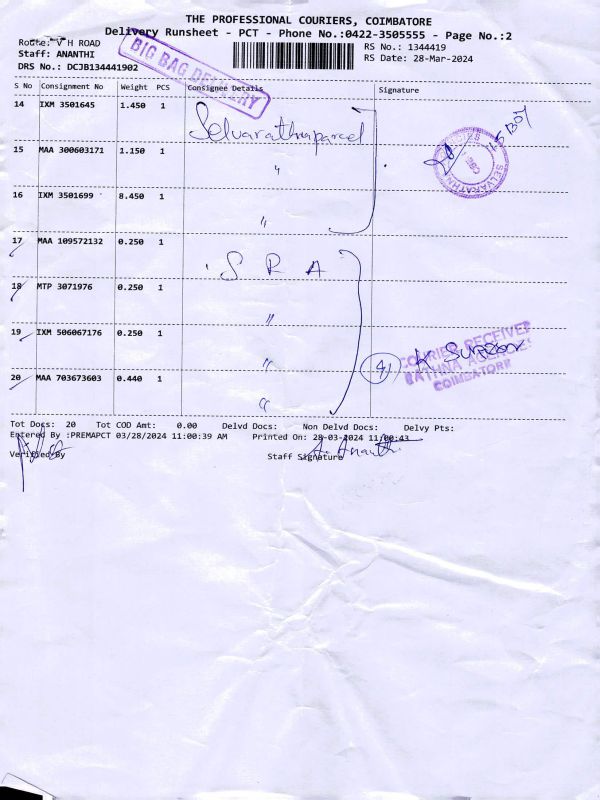 THE PROFESSIONAL COURIERS, COIMBATORE
Delivery Runsheet - PCT - Phone No.:0422-3505555 - Page No.:2
Route: V H ROAD
RS No.: 1344419
Staff: ANANTHI
RS Date: 28-Mar-2024
DRS No.: DCJB134441902
BIG BAG DELIVERY
S No Consignment No Weight PCS Consignee Details Signature
14 IXM 3501645 1.450 1 Selvarathnaparcel
15 MAA 300603171 1.150 1 "
16 IXM 3501699 8.450 1 "
SELVARATHN
17 MAA 109572132 0.250 1 S R A
18 MTP 3071976 0.250 1 "
19 IXM 506067176 0.250 1 "
20 MAA 703673603 0.440 1 "
COURIER RECEIVED
RATHNA AGENCIES
COIMBATORE
Tot Docs: 20 Tot COD Amt: 0.00 Delvd Docs: Non Delvd Docs: Delvy Pts:
Entered By :PREMAPCT 03/28/2024 11:00:39 AM Printed On: 28-03-2024 11:00:43
Verified By Staff Signature A. Ananthi